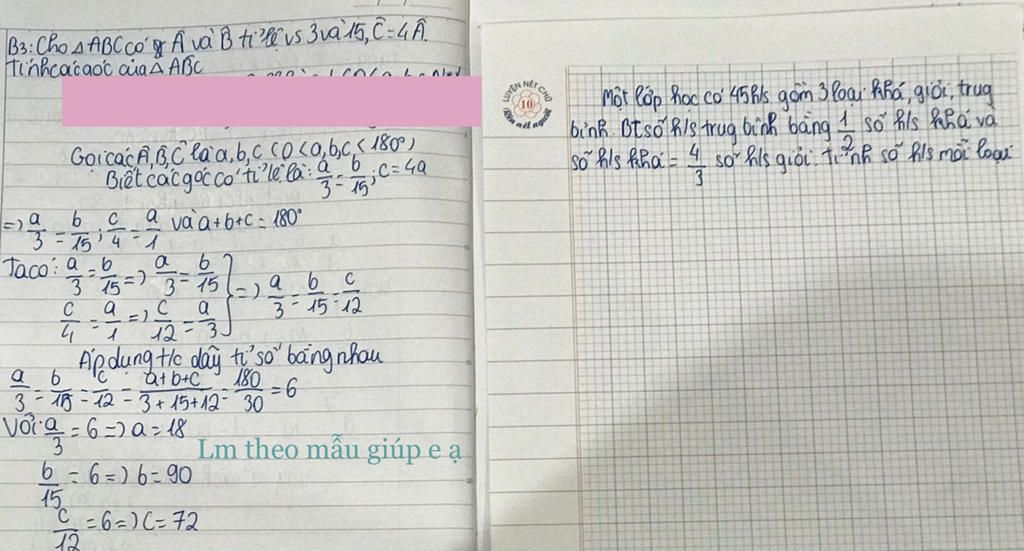 B3: Cho △ABC có Â và B̂ tỉ lệ vs 3 và 15, Ĉ = 4Â.
Tính các góc của △ABC
Gọi các Â, B̂, Ĉ là a, b, c (0 < a, b, c < 180°)
Biết các góc có tỉ lệ là: a/3 = b/15; c = 4a
=> a/3 = b/15; c/4 = a/1 và a+b+c = 180°
Ta có: a/3 = b/15 => a/3 = b/15
c/4 = a/1 => c/12 = a/3 } => a/3 = b/15 = c/12
Áp dụng t/c dãy tỉ số bằng nhau
a/3 = b/15 = c/12 = a+b+c/3+15+12 = 180/30 = 6
Với a/3 = 6 => a = 18
b/15 = 6 => b = 90
c/12 = 6 => c = 72
Lm theo mẫu giúp e ạ
LUYỆN NÉT CHỮ
10
Rèn nét người
Một lớp học có 45 h/s gồm 3 loại: khá, giỏi, trug
bình. BT số h/s trug bình bằng 1/2 số h/s khá và
số h/s khá = 4/3 số h/s giỏi. tính số h/s mỗi loại